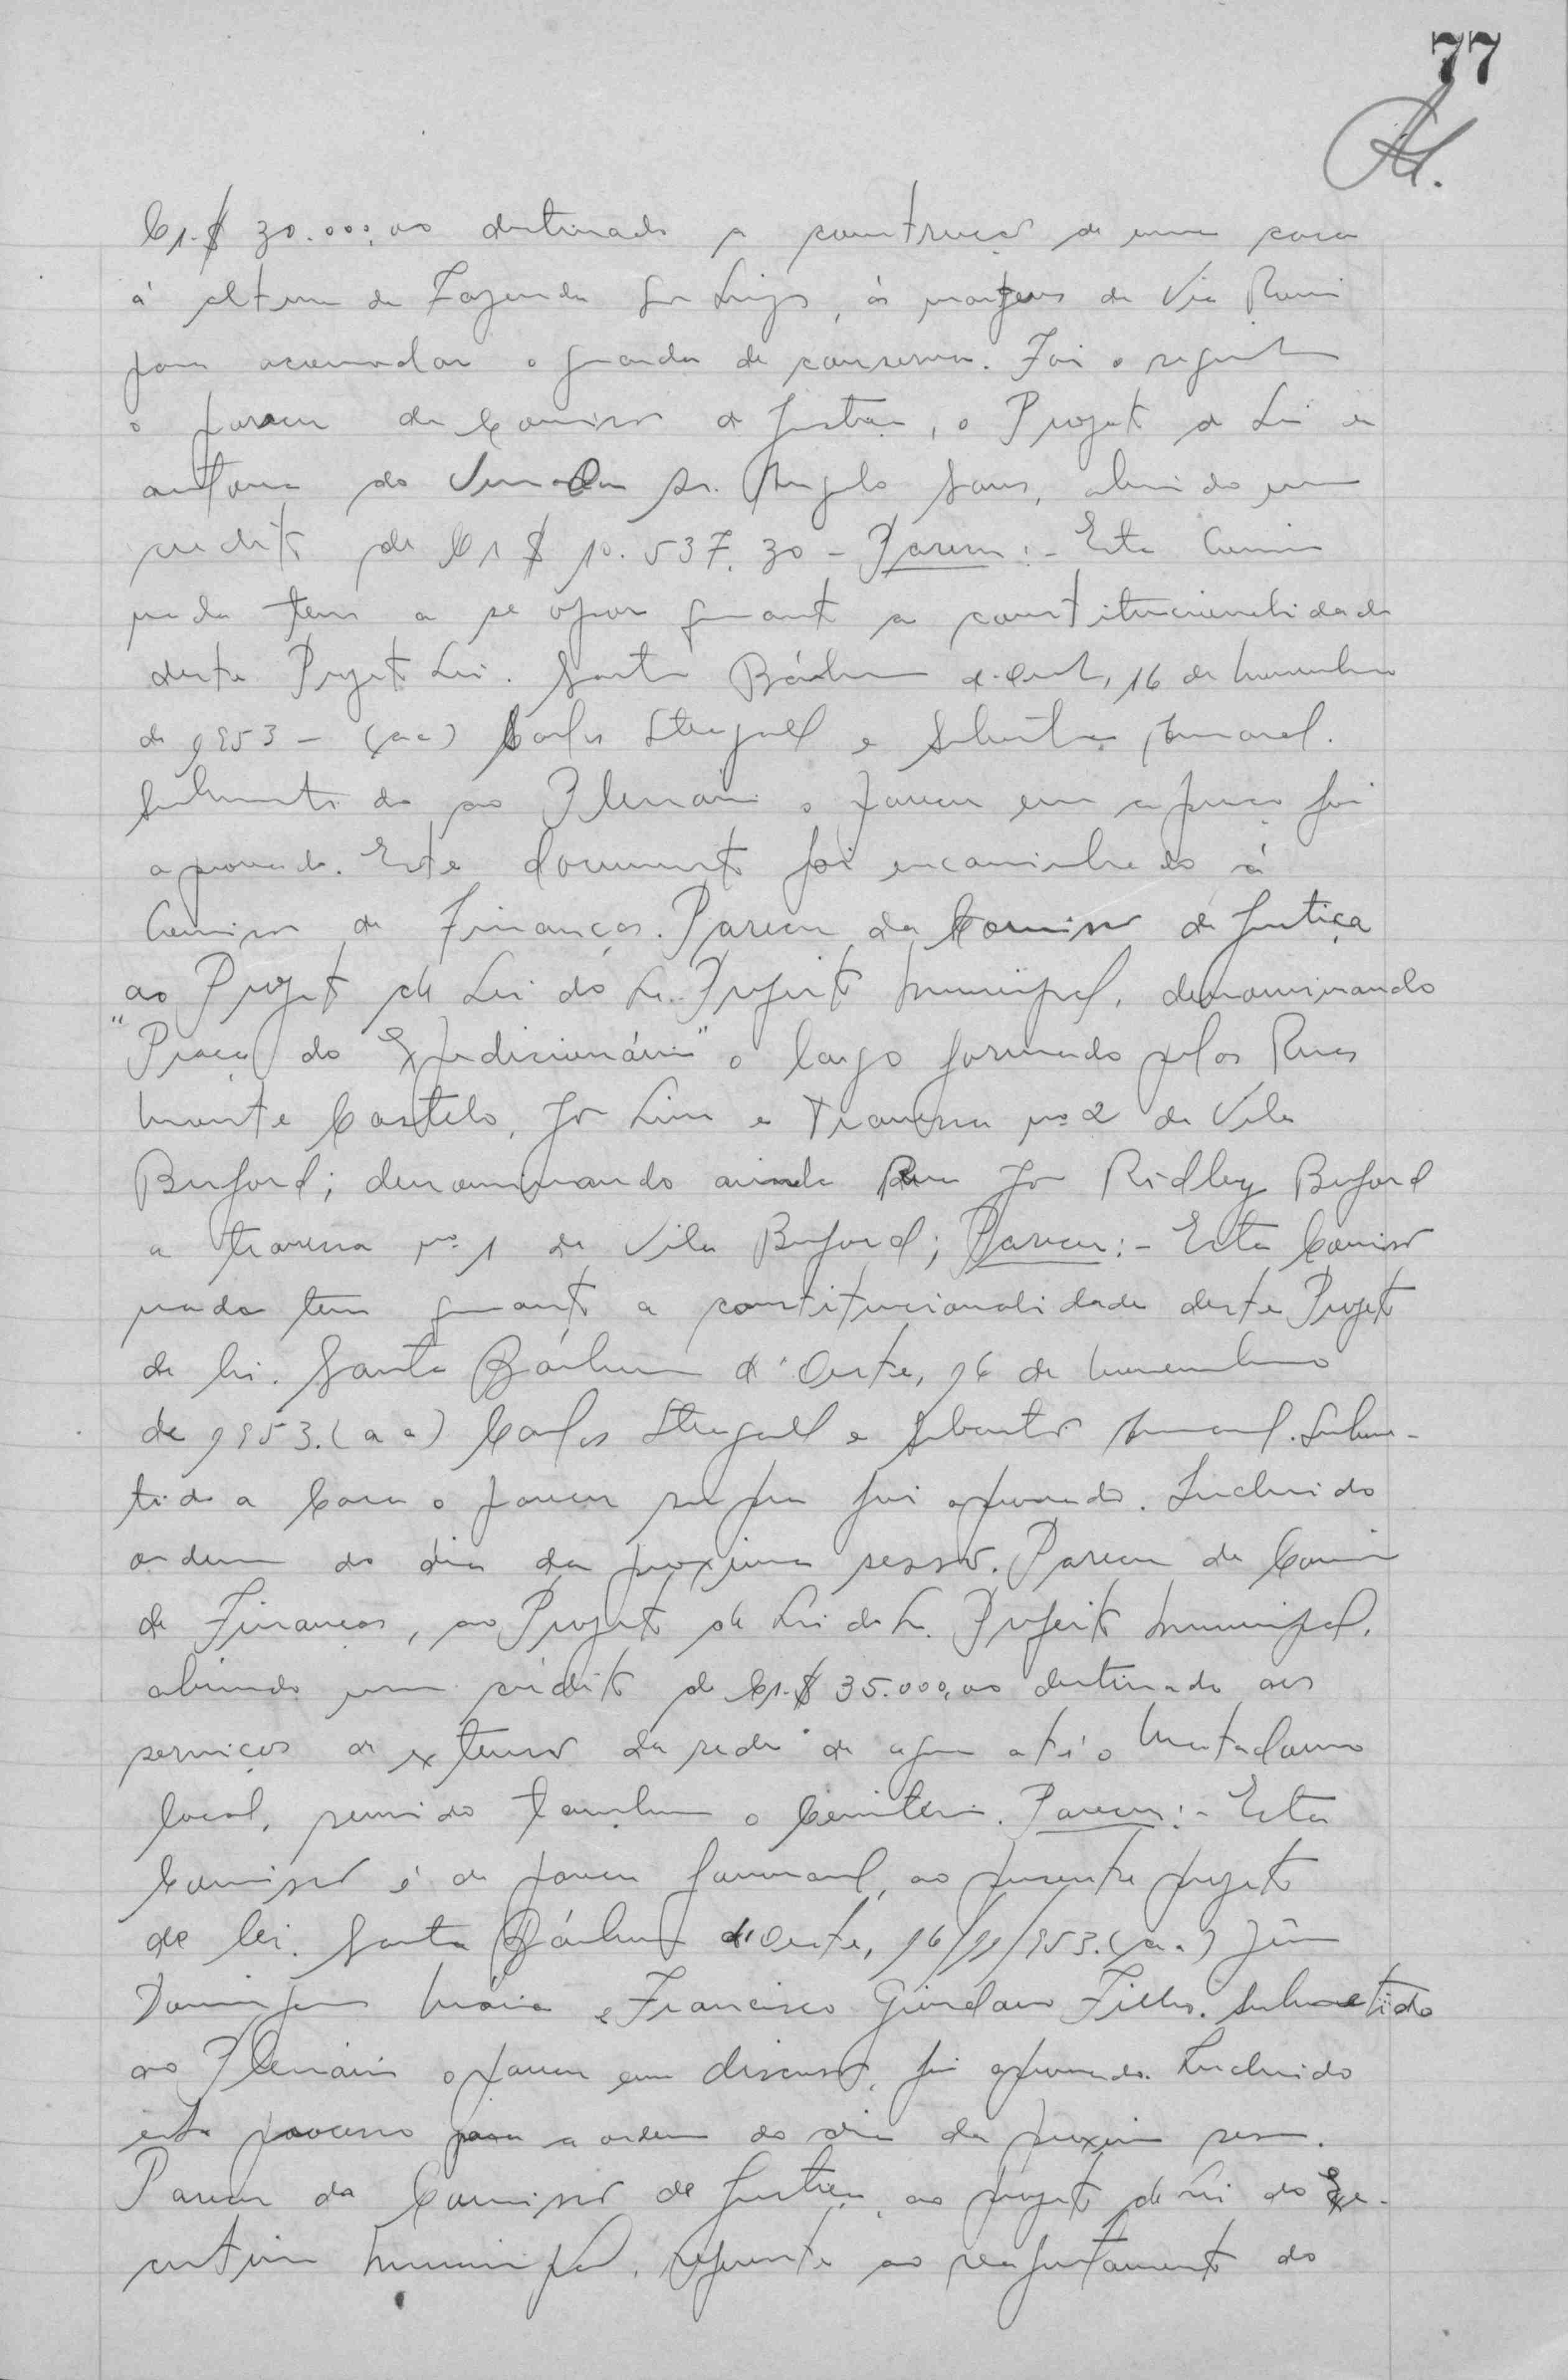 77
Cr.$ 30.000,00 destinado a construção de uma casa
á altura da Fazenda São Luiz, ás margens da Via
para acomodar o guarda de conserva. Foi o seguinte
o parecer da Comissão de Justiça, o Projeto de Lei de
autoria do Vereador Sr. Angelo abrindo um
credito de Cr$ 10.537.30 - Parecer:- Esta Comissão
nada tem a se opor quanto a constitucionalidade
deste Projeto Lei. Santa Bárbara d'Oeste, 16 de Novembro
de 1953 - (aa) Carlos Steagall e Sebastião Amaral.
Submetido ao Plenario o parecer em apreço foi
aprovado. Este documento foi encaminhado á
Comissão de Finanças. Parecer da Comissão de Justiça
ao Projeto de Lei do Sr. Prefeito Municipal, denominando
"Praça do Expedicionário" o largo formado pelas Ruas
Monte Castelo, João Lino e Travessa nº 2 da Vila
Buford; denominando ainda Rua João Ridley Buford
a travessa nº 1 da Vila Buford; Parecer:- Esta Comissão
nada tem quanto a constitucionalidade deste Projeto
de lei. Santa Bárbara d'Oeste, 16 de Novembro
de 1953. (aa) Carlos Steagall e Sebastião Amaral. Subme-
tido a Casa o parecer supra foi aprovado. Incluido
ordem do dia da proxima sessão. Parecer da Comissão
de Finanças, ao Projeto de Lei do Sr. Prefeito Municipal,
abrindo um crédito de Cr.$ 35.000,00 destinado aos
serviços de extensão da rede de agua até o Matadouro
local, servindo tambem o Cemiterio. Parecer:- Esta
Comissão é de parecer favoravel, ao presente projeto
de lei. Santa Bárbara d'Oeste, 16/11/953. (aa)
Domingues Maia e Francisco Giordano Filho. Submetido
ao Plenário o parecer em discussão, foi aprovado. Incluido
este processo para a ordem do dia da proxima sessão.
Parecer da Comissão de Justiça, ao projeto de Lei do Exe-
cutivo Municipal, referente ao reajustamento do